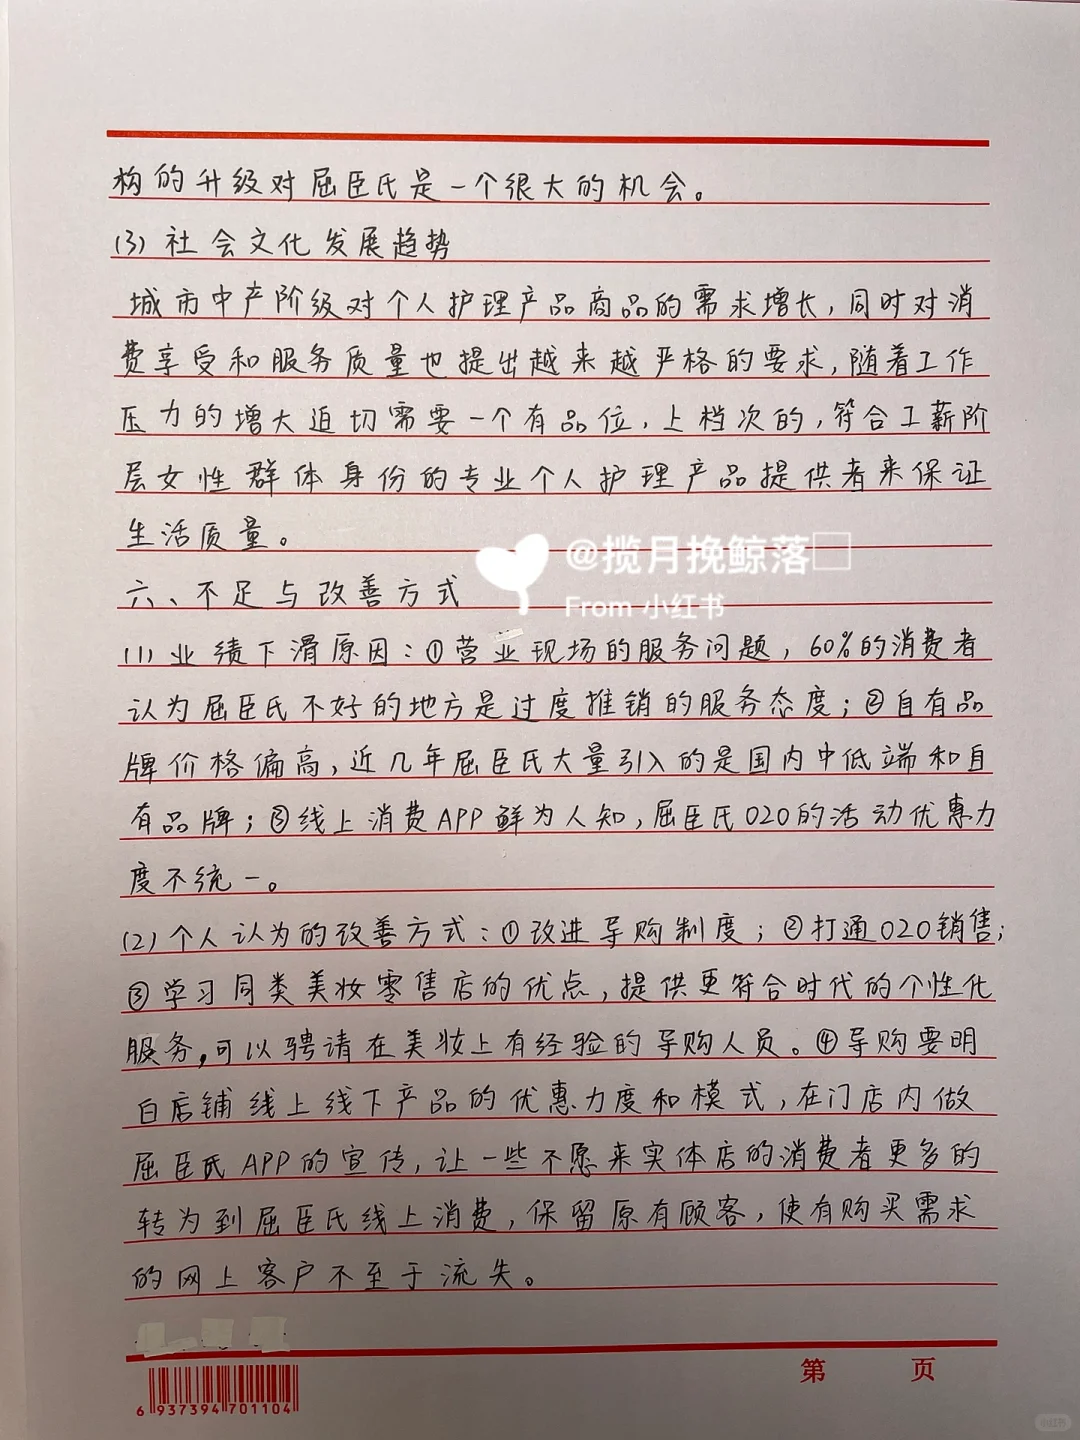 构的升级对屈臣氏是一个很大的机会。
(3)社会文化发展趋势
城市中产阶级对个人护理产品商品的需求增长,同时对消
费享受和服务质量也提出越来越严格的要求,随着工作
压力的增大迫切需要一个有品位,上档次的,符合工薪阶
层女性群体身份的专业个人护理产品提供者来保证
生活质量。
@揽月挽鲸落□
From 小红书
六、不足与改善方式
(1)业绩下滑原因:①营业现场的服务问题,60%的消费者
认为屈臣氏不好的地方是过度推销的服务态度;②自有品
牌价格偏高,近几年屈臣氏大量引入的是国内中低端和自
有品牌;③线上消费APP鲜为人知,屈臣氏O2O的活动优惠力
度不统一。
(2)个人认为的改善方式:①改进导购制度;②打通O2O销售;
③学习同类美妆零售店的优点,提供更符合时代的个性化
服务,可以骋请在美妆上有经验的导购人员。④导购要明
白店铺线上线下产品的优惠力度和模式,在门店内做
屈臣氏APP的宣传,让一些不愿来实体店的消费者更多的
转为到屈臣氏线上消费,保留原有顾客,使有购买需求
的网上客户不至于流失。
第 页
6 937394 701104
小红书